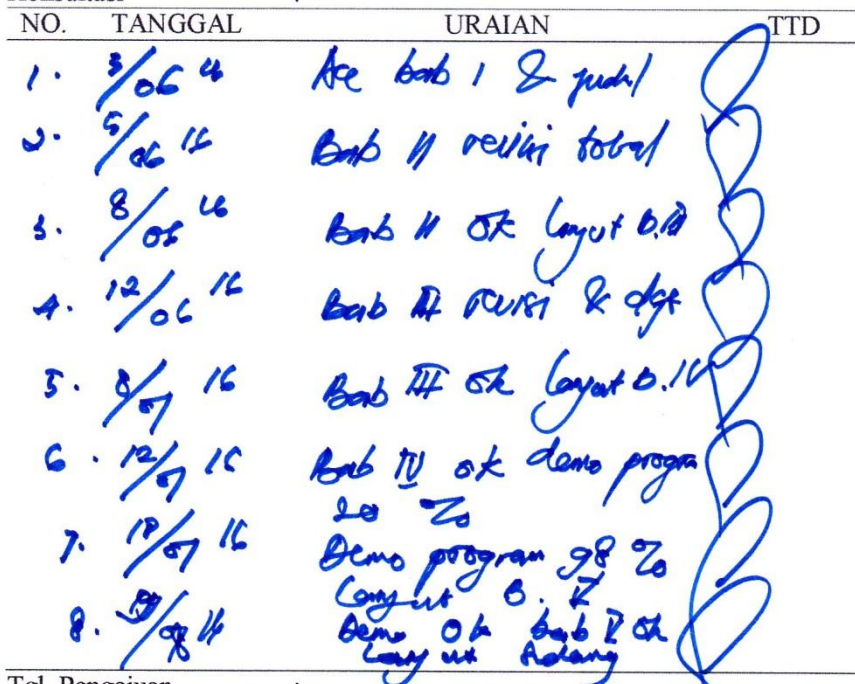 NO. TANGGAL URAIAN TTD
1. 3/06 16 Acc bab 1 & judul
2. 5/06 16 Bab II revisi total
3. 8/06 16 Bab II ok lanjut B.III
4. 12/06 16 Bab III revisi &
5. 8/07 16 Bab III ok lanjut B.IV
6. 12/07 16 Bab IV ok demo program
20 %
7. 18/07 16 Demo program 98 %
lanjut B. V
8. /08 16 Demo ok bab V ok
lanjut sidang
Tgl. Pengajuan